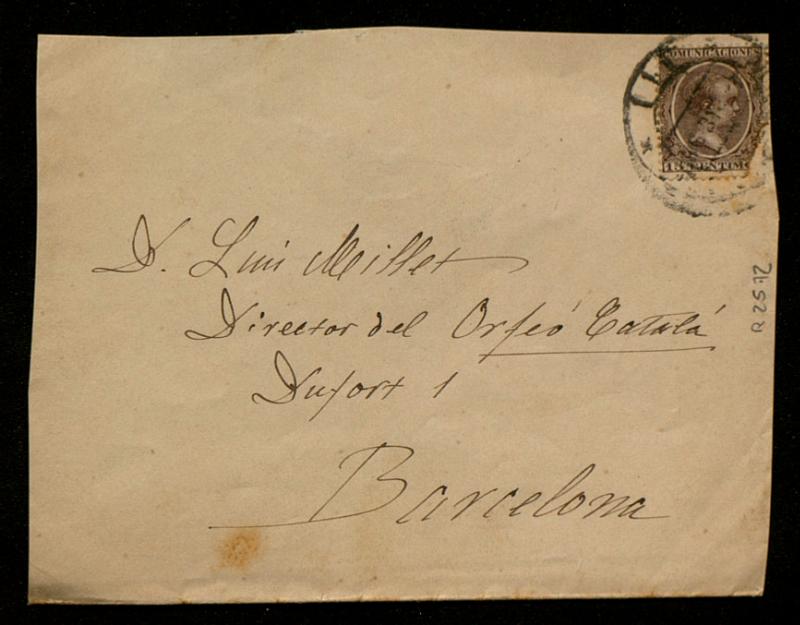 COMUNICACIONES
15 CENTIMOS
D. Luis Millet
Director del Orfeó Catalá
Dufort 1
Barcelona
R 2572